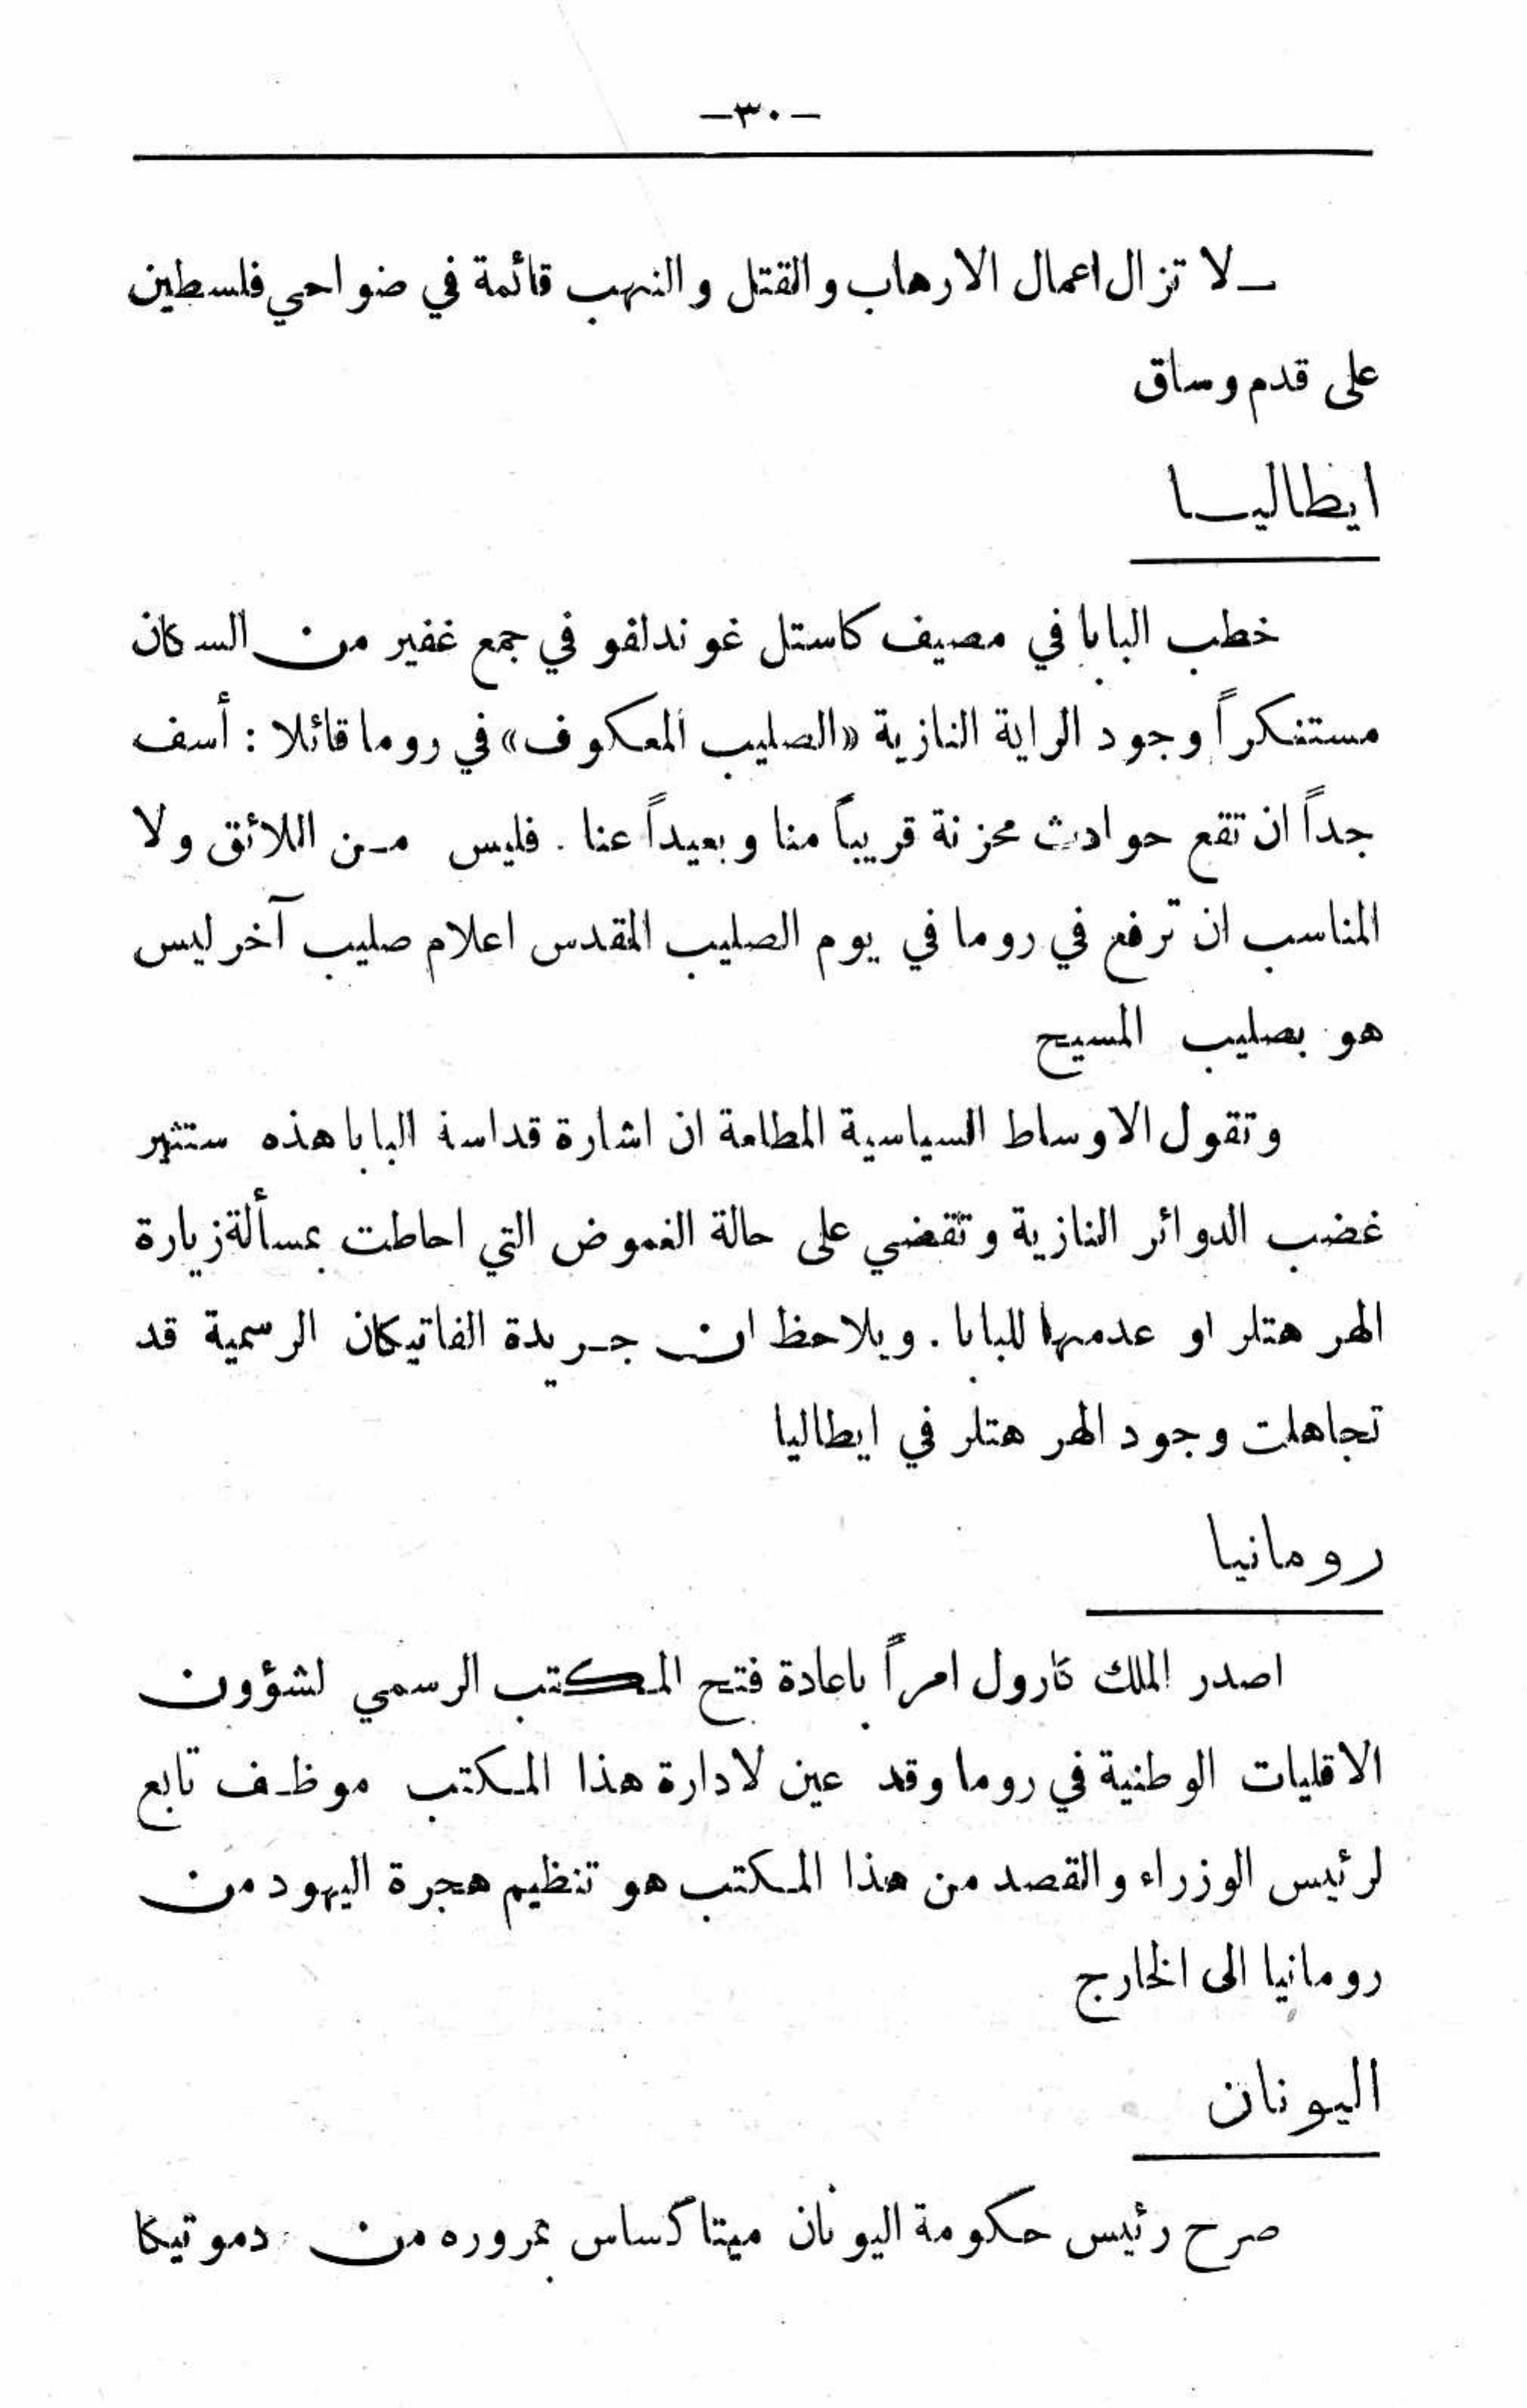 —٣٠—
— لا تزال اعمال الارهاب والقتل والنهب قائمة في ضواحي فلسطين
على قدم وساق
ايطاليـا
خطب البابا في مصيف كاستل غوندلفو في جمع غفير من السكان
مستنكراً وجود الراية النازية «الصليب المعكوف» في روما قائلا : أسف
جداً ان تقع حوادث محزنة قريباً منا وبعيداً عنا . فليس من اللائق ولا
المناسب ان ترفع في روما في يوم الصليب المقدس اعلام صليب آخر ليس
هو بصليب المسيح
وتقول الاوساط السياسية المطلعة ان اشارة قداسة البابا هذه ستثير
غضب الدوائر النازية وتقضي على حالة الغموض التي احاطت بمسألة زيارة
الهر هتلر او عدمها للبابا . ويلاحظ ان جريدة الفاتيكان الرسمية قد
تجاهلت وجود الهر هتلر في ايطاليا
رومانيا
اصدر الملك كارول امراً باعادة فتح المكتب الرسمي لشؤون
الاقليات الوطنية في روما وقد عين لادارة هذا المكتب موظف تابع
لرئيس الوزراء والقصد من هذا المكتب هو تنظيم هجرة اليهود من
رومانيا الى الخارج
اليونان
صرح رئيس حكومة اليونان ميتاكساس بمروره من دموتيكا